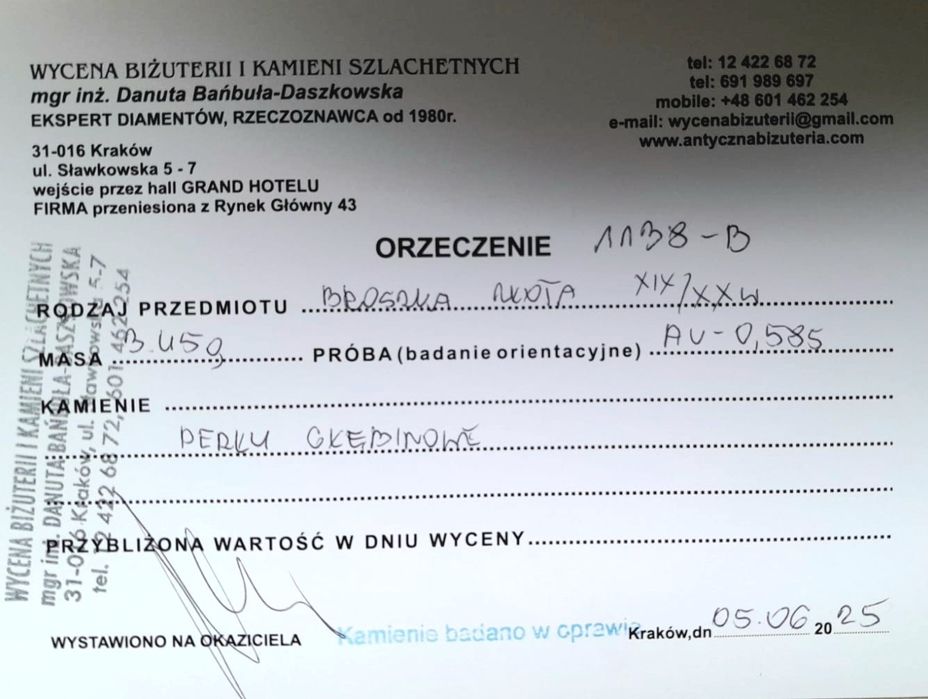 WYCENA BIŻUTERII I KAMIENI SZLACHETNYCH
mgr inż. Danuta Bańbuła-Daszkowska
EKSPERT DIAMENTÓW, RZECZOZNAWCA od 1980r.
31-016 Kraków
ul. Sławkowska 5 - 7
wejście przez hall GRAND HOTELU
FIRMA przeniesiona z Rynek Główny 43
tel: 12 422 68 72
tel: 691 989 697
mobile: +48 601 462 254
e-mail: wycenabizuterii@gmail.com
www.antycznabizuteria.com
ORZECZENIE 1138-B
RODZAJ PRZEDMIOTU BROSZKA ZŁOTA XIX/XXw
MASA 3.45g PRÓBA (badanie orientacyjne) AU-0,585
KAMIENIE
PERŁY
PRZYBLIŻONA WARTOŚĆ W DNIU WYCENY
WYSTAWIONO NA OKAZICIELA
Kamienie badano w oprawie
Kraków,dn 05.06 2025
WYCENA BIŻUTERII I KAMIENI SZLACHETNYCH
mgr inż. DANUTA BAŃBUŁA-DASZKOWSKA
31-016 Kraków, ul. Sławkowska 5-7
tel. 12 422 68 72, 601 462 254